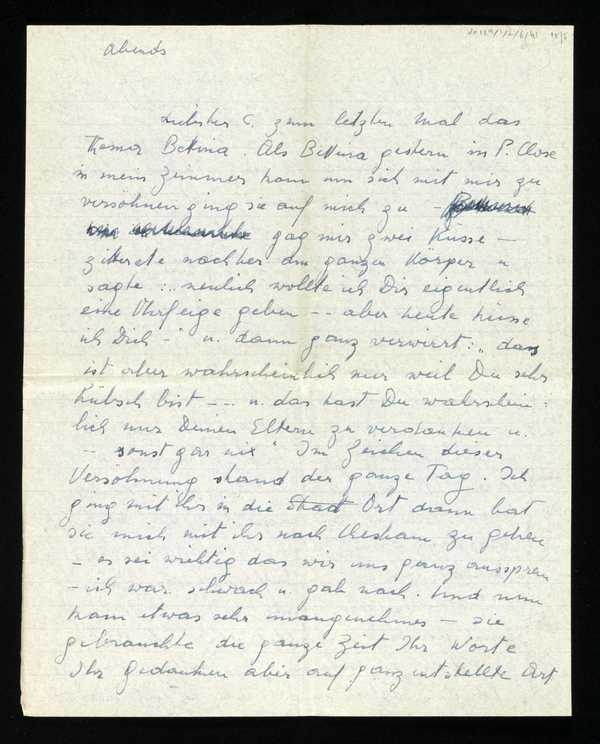 abends
Liebster C. zum letzten Mal das
Thema Bettina. Als Bettina gestern in P. Close
in mein Zimmer kam um sich mit mir zu
versöhnen ging sie auf mich zu -
gag mir zwei Küsse -
zitterte nachher am ganzen Körper u
sagte: „neulich wollte ich Dir eigentlich
eine Ohrfeige geben -- aber heute küsse
ich Dich -" u. dann ganz verwirrt: „das
ist aber wahrscheinlich nur weil Du sehr
hübsch bist -- u. das hast Du wahrschein:
lich nur Deinen Eltern zu verdanken u.
-- sonst gar nix" Im Zeichen dieser
Versöhnung stand der ganze Tag. Ich
ging mit ihr in die Stadt Ort dann bat
sie mich mit ihr nach Chesham zu gehen
- es sei wichtig das wir uns ganz aussprechen
- ich war schwach u. gab nach. Und nun
kam etwas sehr unangenehmes - sie
gebrauchte die ganze Zeit Ihr Worte
Ihr Gedanken aber auf ganz entstellte Art